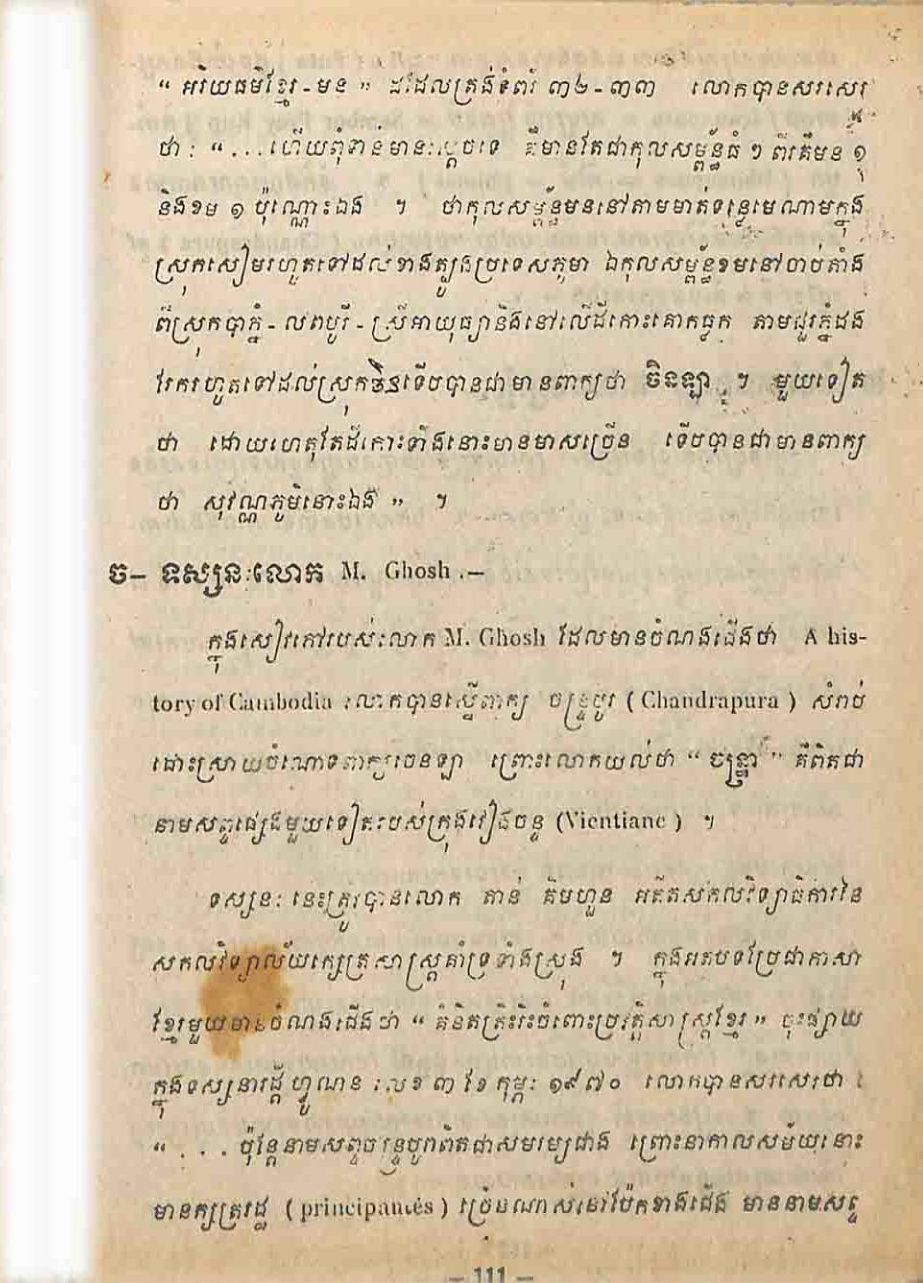 “ អរិយធម៌ខ្មែរ - មន ” ដដែលត្រង់ទំព័រ ៣២ - ៣៣ លោកបានសរសេរ
ថា : “ ... ហើយពុំទាន់មានៈស្ដេចទេ គឺមានតែជាកុលសម្ព័ន្ធធំ ៗ ពីរគឺមន ១
និងខម ១ ប៉ុណ្ណោះឯង ។ ថាកុលសម្ព័ន្ធមននៅតាមមាត់ទន្លេមេណាមក្នុង
ស្រុកសៀមរហូតទៅដល់ខាងត្បូងប្រទេសភូមា ឯកុលសម្ព័ន្ធខមនៅចាប់តាំង
ពីស្រុកបាភ្នំ - លពបូរី - ស្រីអាយុធ្យានិងនៅលើដីកោះគោកធ្លក តាមជួរភ្នំដង
រែករហូតទៅដល់ស្រុកចិនទើបបានជាមានពាក្យថា ចិនឡា ។ មួយទៀត
ថា ដោយហេតុតែដីកោះទាំងនោះមានមាសច្រើន ទើបបានជាមានពាក្យ
ថា សុវណ្ណភូមិនោះឯង ” ។
ច– ទស្សនៈលោក M. Ghosh .–
ក្នុងសៀវភៅរបស់លោក M. Ghosh ដែលមានចំណងជើងថា A his-
tory of Cambodia លោកបានស្នើពាក្យ ចន្ទ្របូរ ( Chandrapura ) សំរាប់
ដោះស្រាយចំណោទពាក្យចេនឡា ព្រោះលោកយល់ថា “ ចន្ទ្រា ” គឺពិតជា
នាមសព្ទផ្សេងមួយទៀតរបស់ក្រុងវៀងចន្ទ (Vientiane ) ។
ទស្សនៈ នេះត្រូវបានលោក តាន់ គិមហួន អតីតសកលវិទ្យាធិការនៃ
សកលវិទ្យាល័យក្សេត្រសាស្ត្រគាំទ្រទាំងស្រុង ។ ក្នុងអត្ថបទប្រែជាភាសា
ខ្មែរមួយមានចំណងជើងថា “ គំនិតត្រិះរិះចំពោះប្រវត្តិសាស្ត្រខ្មែរ ” ចុះផ្សាយ
ក្នុងទស្សនាវដ្ដី ហ្វូណន លេខ ៣ ខែ កុម្ភៈ ១៩៧០ លោកបានសរសេរថា :
“ . . . ប៉ុន្តែនាមសព្ទចន្ទ្របូរពិតជាសមរម្យជាង ព្រោះនាកាលសម័យនោះ
មានក្សត្ររដ្ឋ ( principautés ) ច្រើនណាស់នៅប៉ែកខាងជើង មាននាមសព្ទ
– 111 –